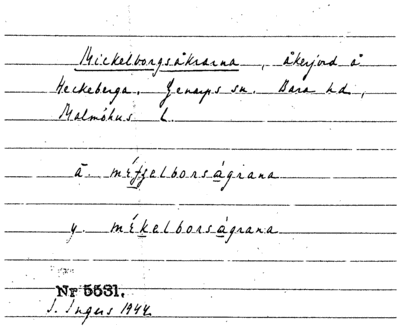 Mickelborgsåkrarna, åkerjord å
Heckeberga, Genarps sn. Bara hd,
Malmöhus l.
ä. méʒʒelborságrana
y. mékelborságrana
Nr 5531.
I. Ingers 1944.